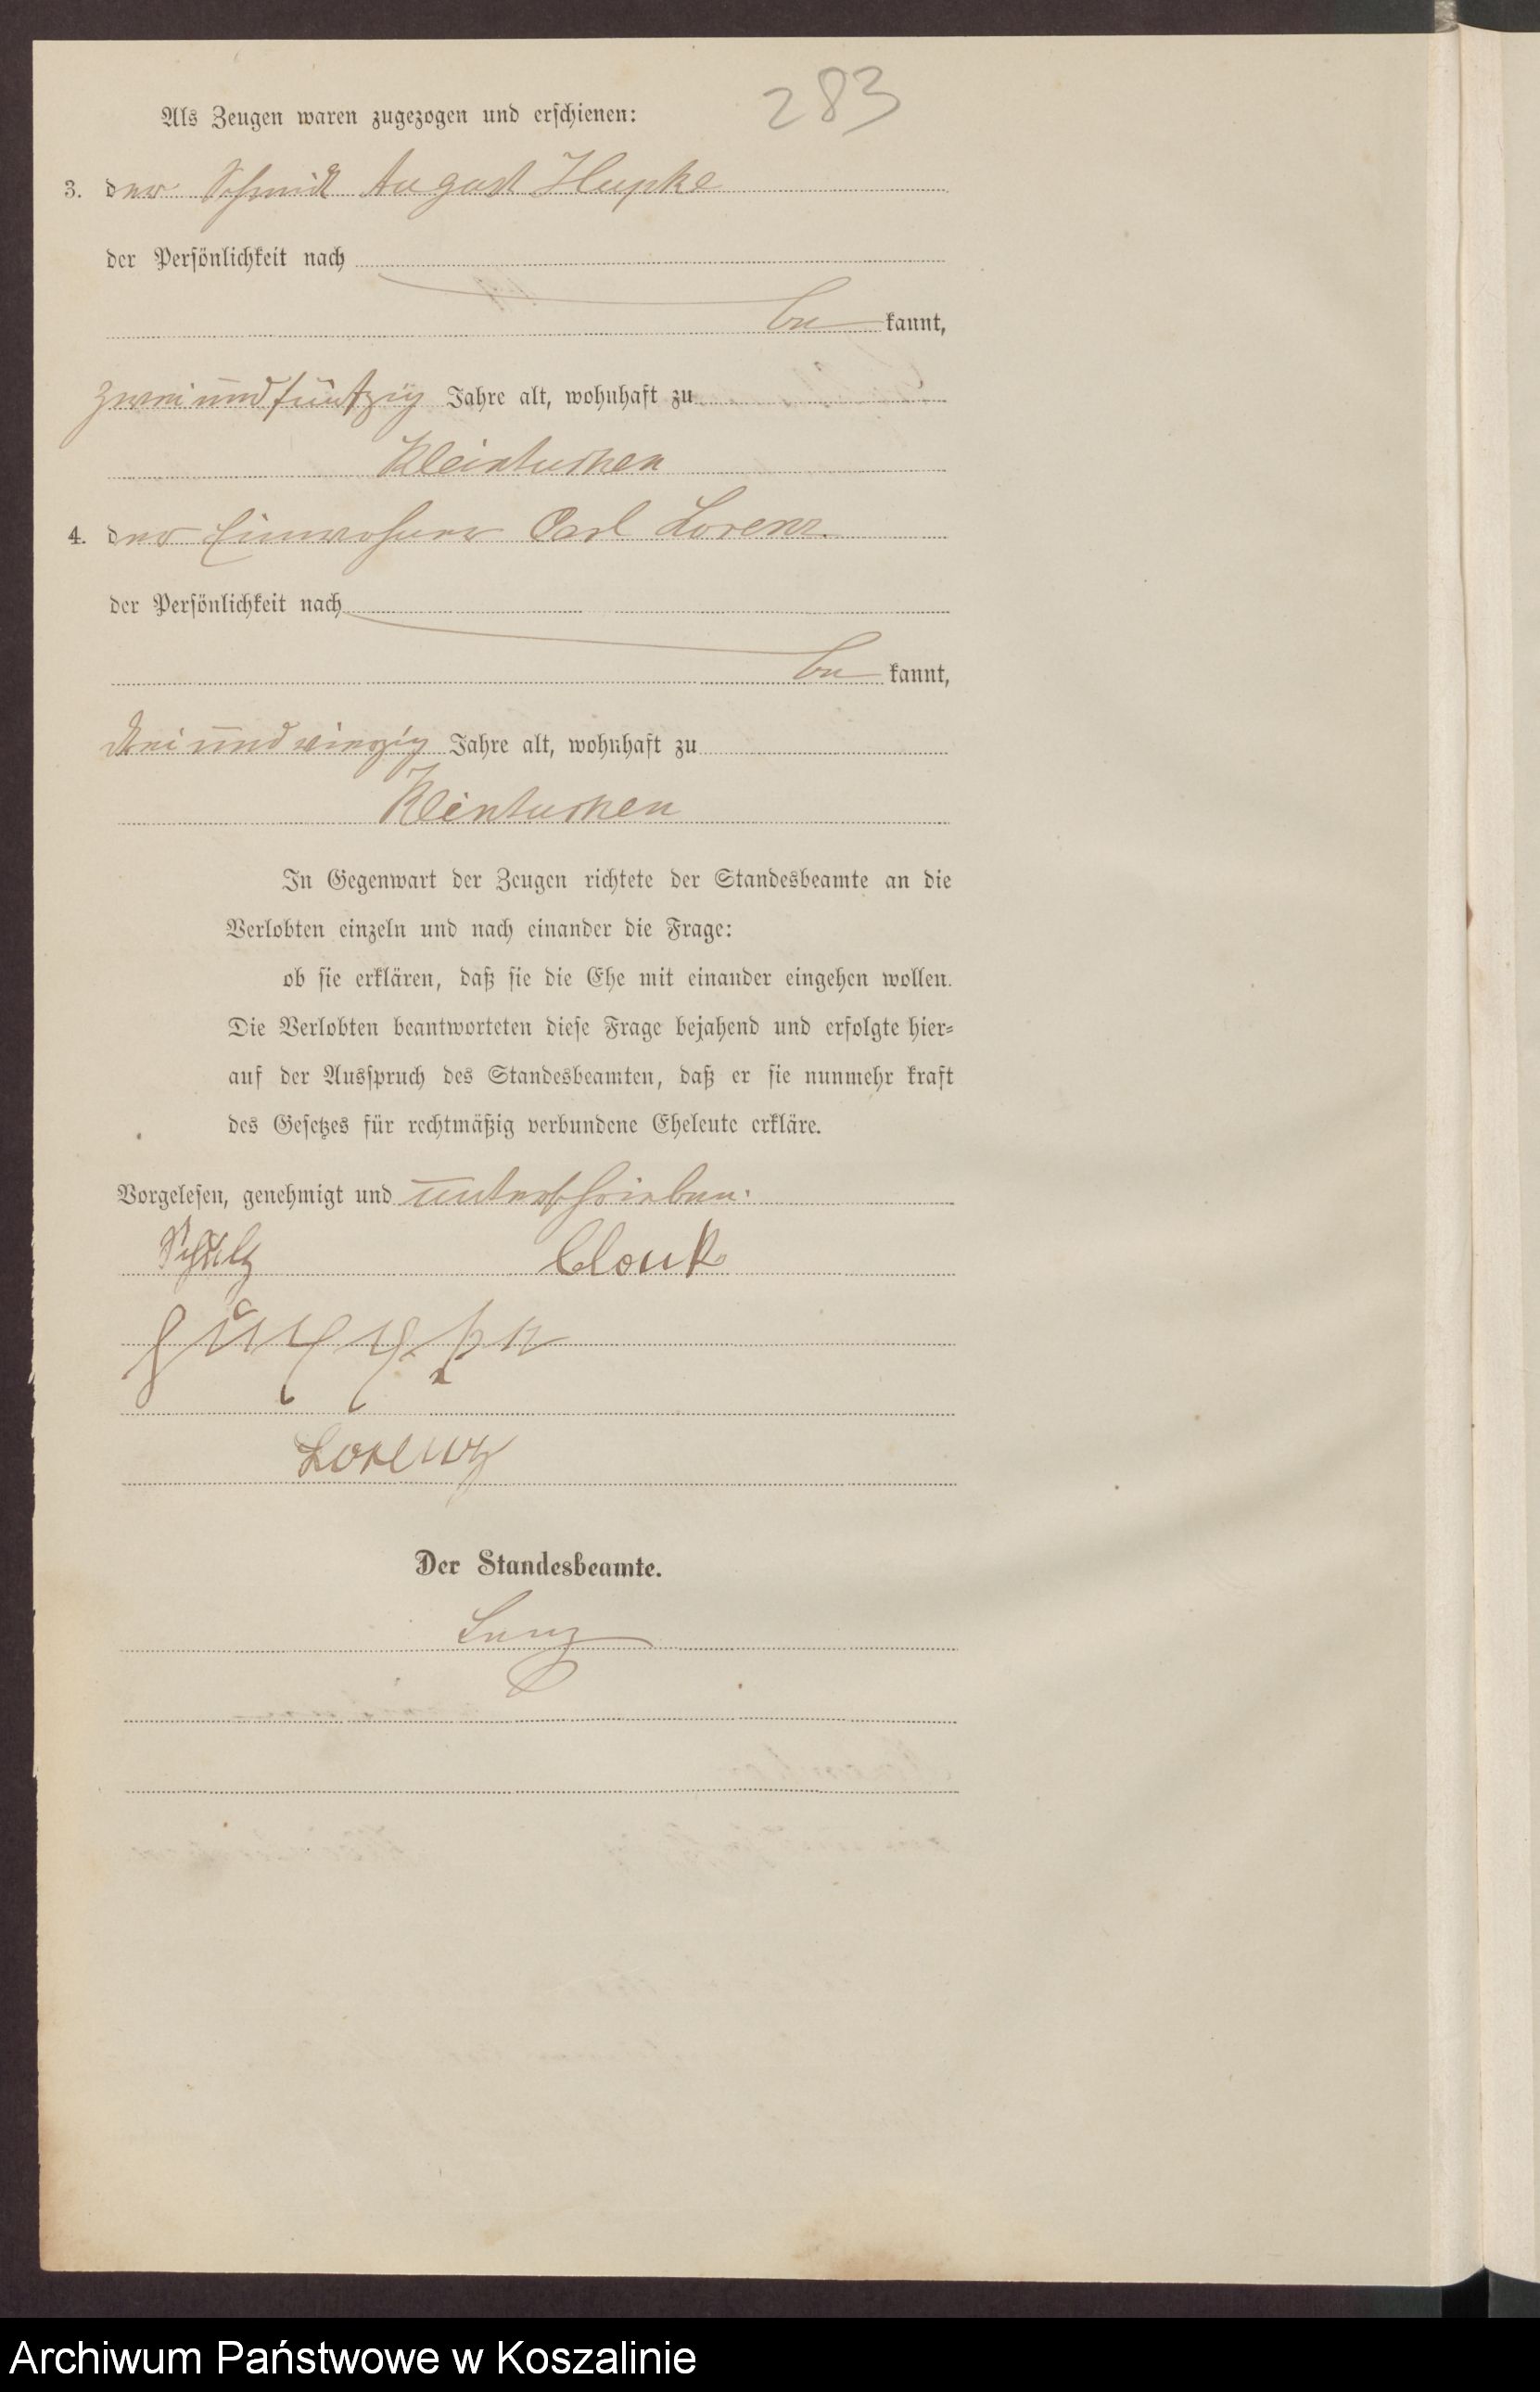 283
Als Zeugen waren zugezogen und erschienen:
3. der Schmidt August Hupke
der Persönlichkeit nach
be kannt,
zweiundfünfzig Jahre alt, wohnhaft zu
Kleintuchen
4. der Einwohner Carl Lorenz
der Persönlichkeit nach
be kannt,
dreiundvierzig Jahre alt, wohnhaft zu
Kleintuchen
In Gegenwart der Zeugen richtete der Standesbeamte an die
Verlobten einzeln und nach einander die Frage:
ob sie erklären, daß sie die Ehe mit einander eingehen wollen.
Die Verlobten beantworteten diese Frage bejahend und erfolgte hier-
auf der Ausspruch des Standesbeamten, daß er sie nunmehr kraft
des Gesetzes für rechtmäßig verbundene Eheleute erkläre.
Vorgelesen, genehmigt und unterschrieben.
Schulz
Lorenz
Der Standesbeamte.
Archiwum Państwowe w Koszalinie